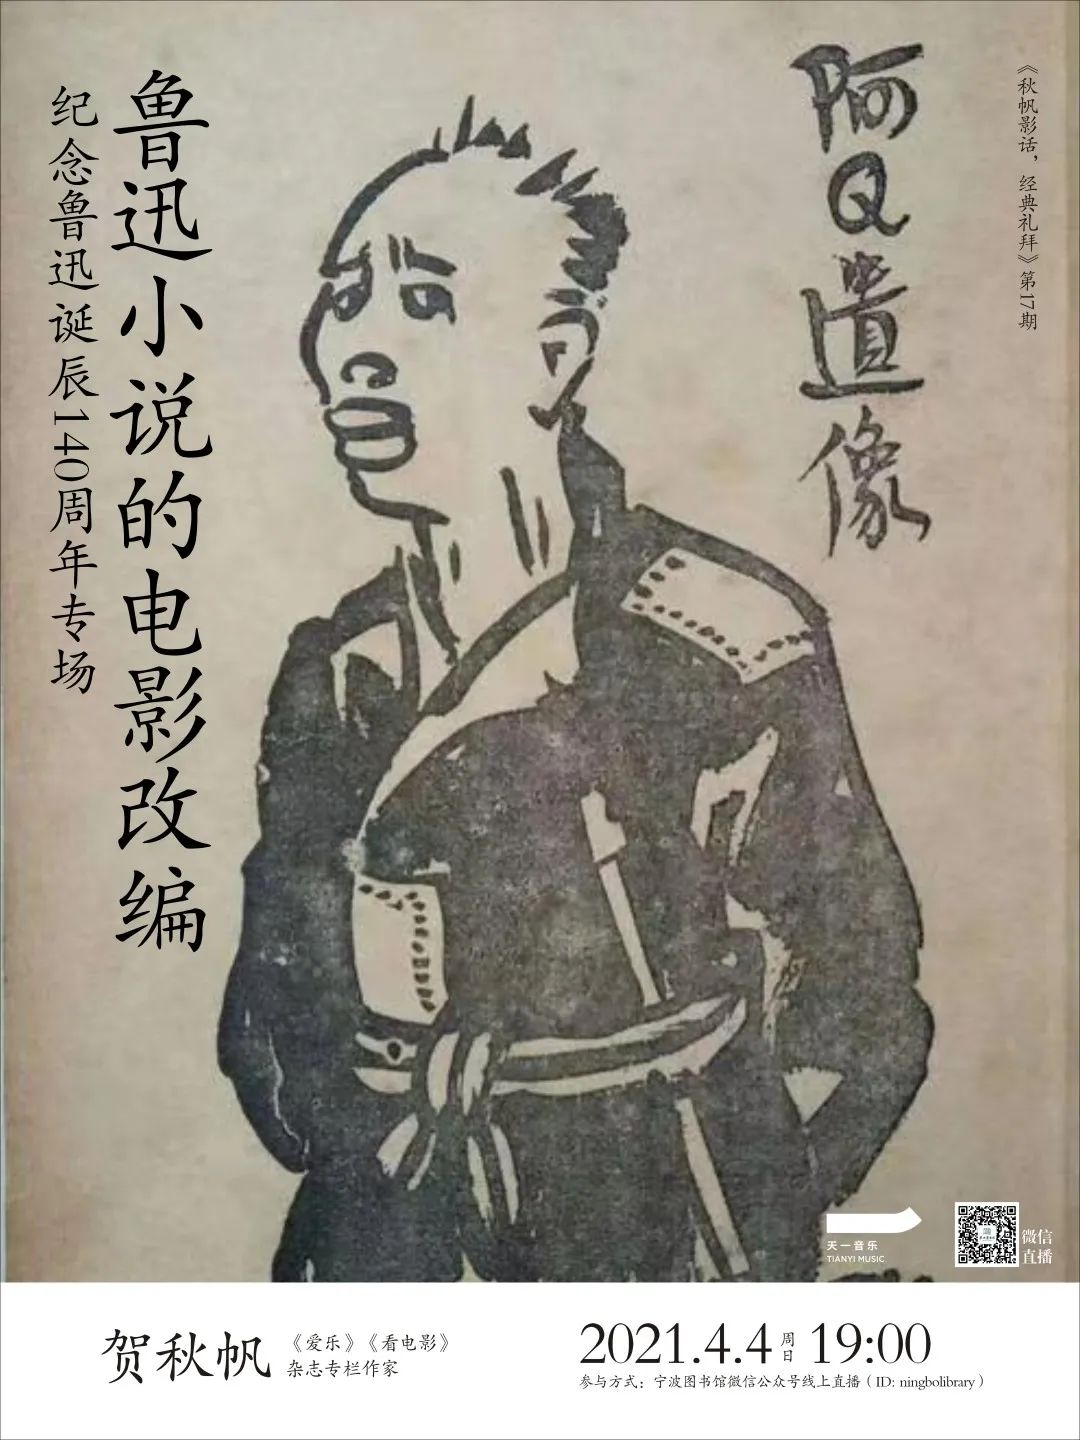 《秋帆影话，经典礼拜》第17期
阿Q遺像
鲁迅小说的电影改编
纪念鲁迅诞辰140周年专场
天一音乐
TIANYI MUSIC
微信
直播
贺秋帆
《爱乐》《看电影》
杂志专栏作家
2021.4.4 周日 19:00
参与方式：宁波图书馆微信公众号线上直播（ID: ningbolibrary）